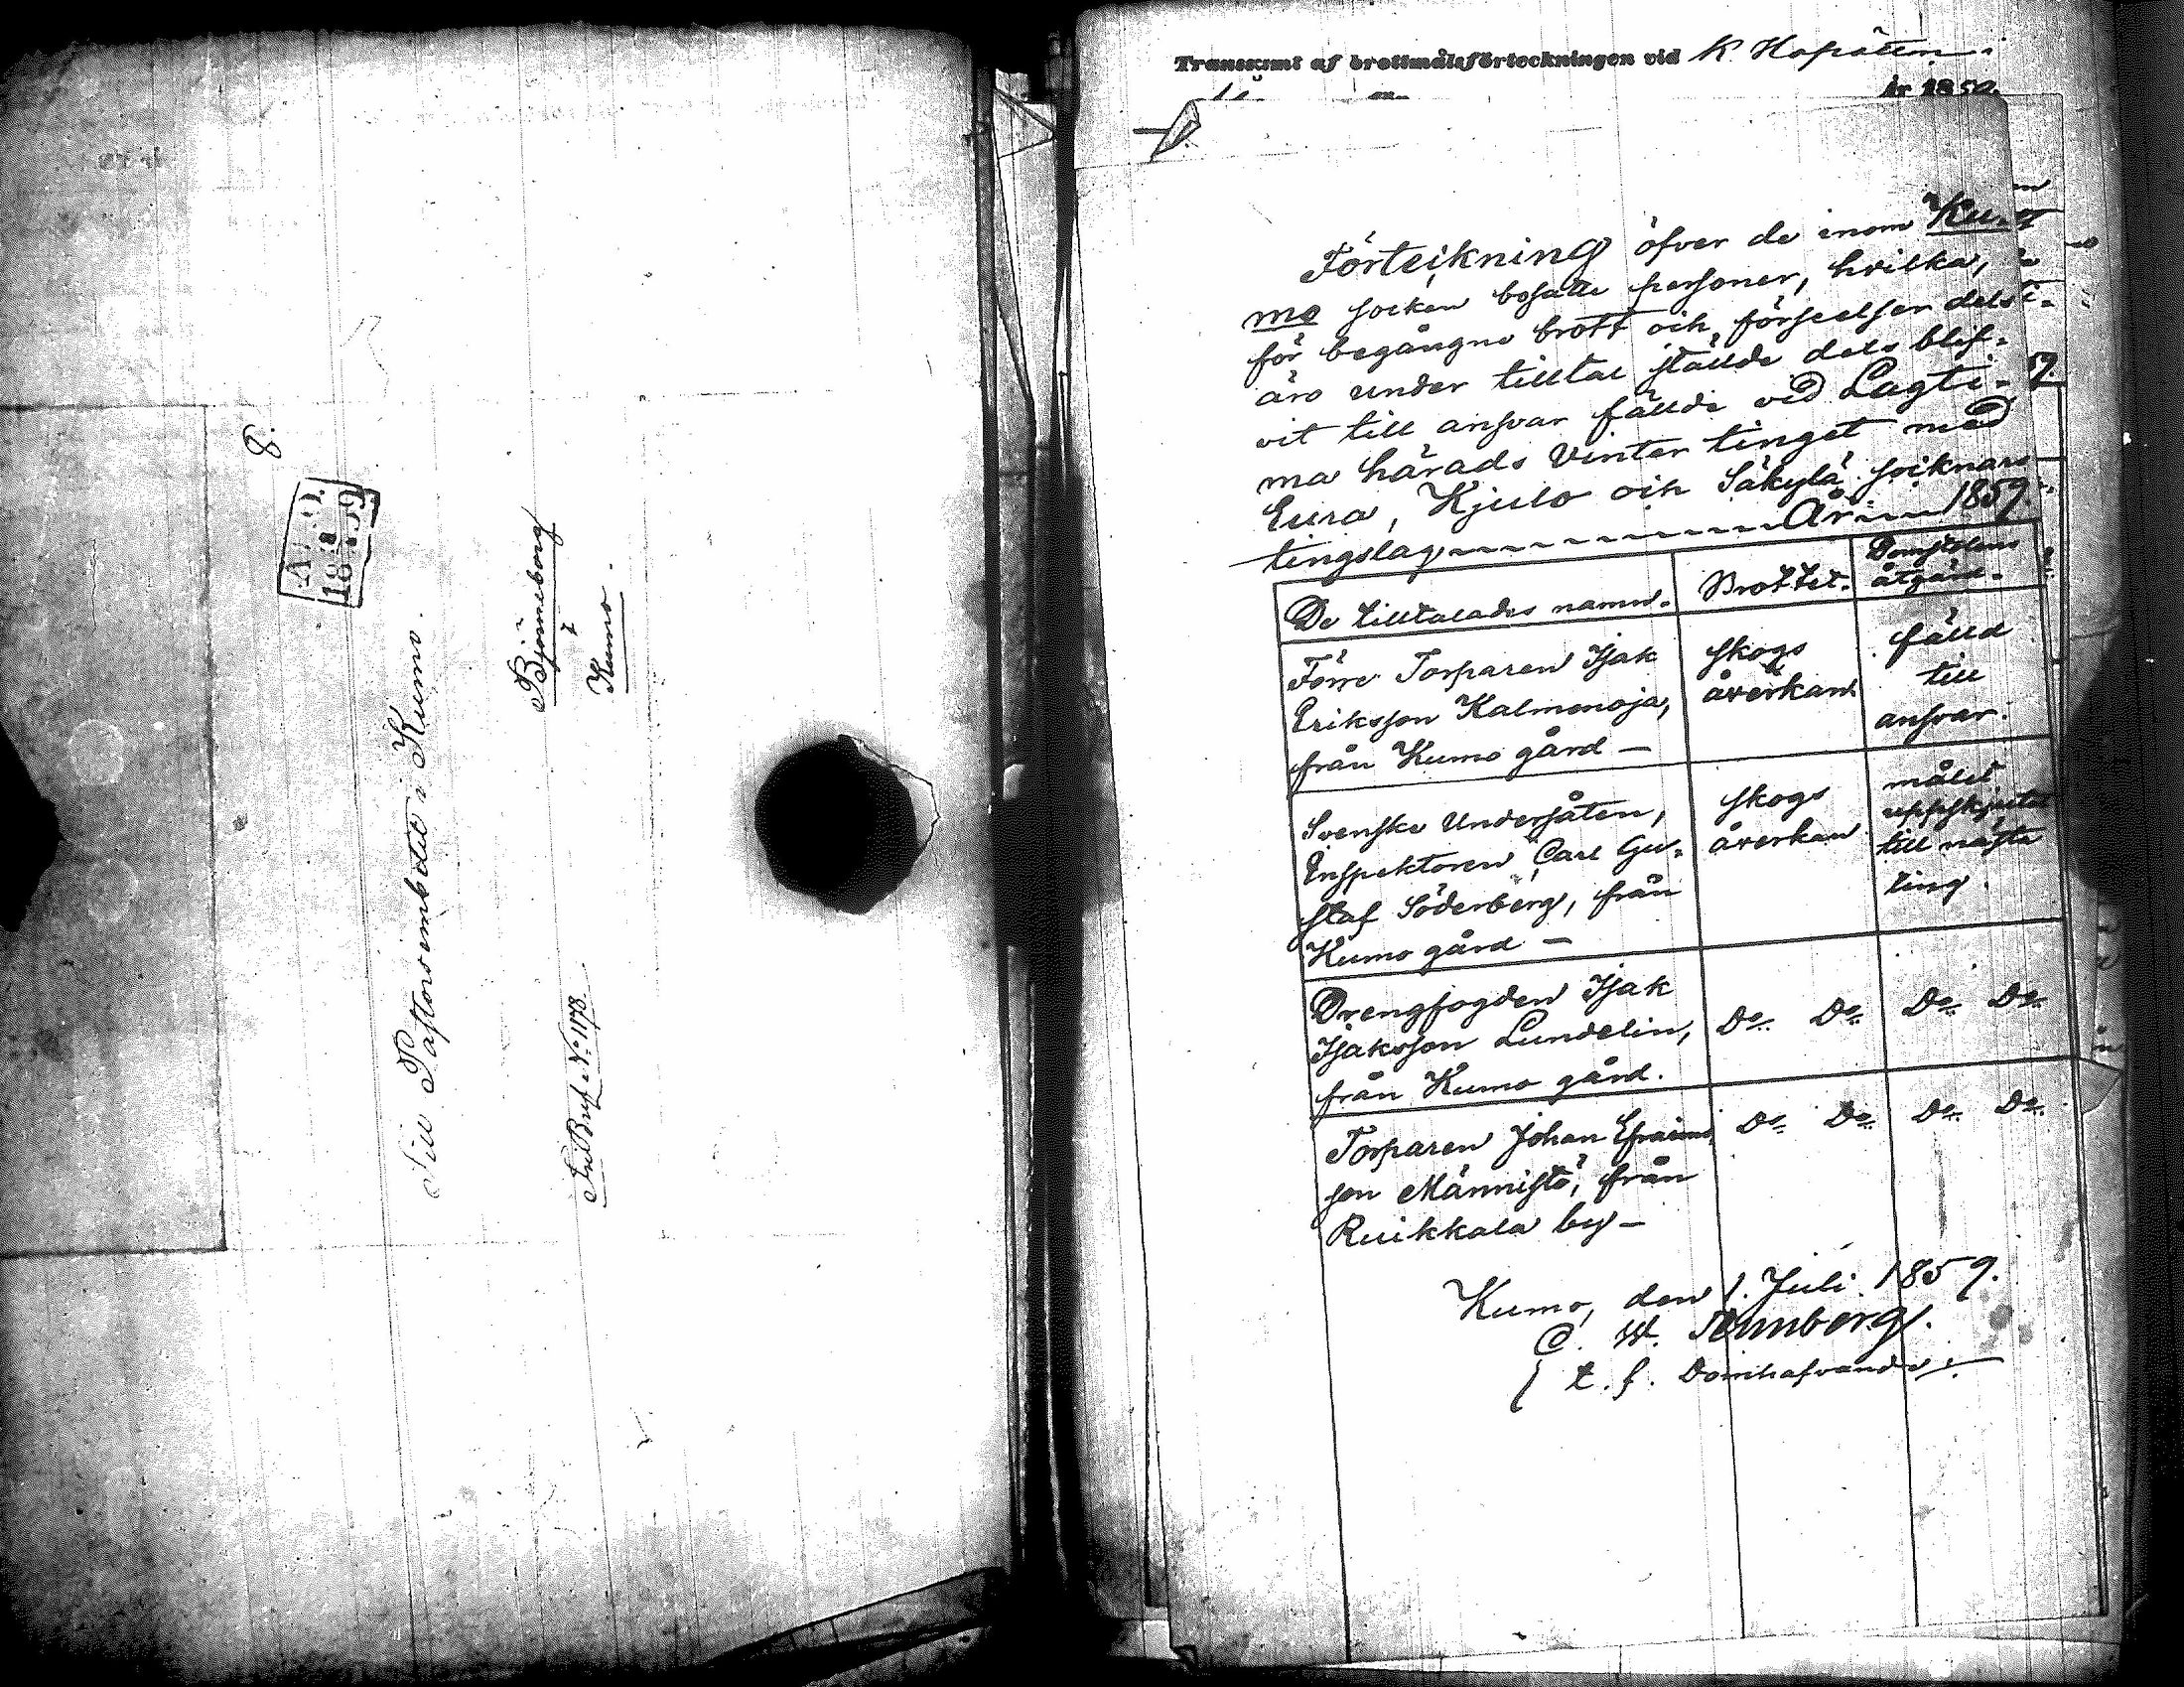 8.
ÅBO
1859
Till Pastorsembetet i Kumo.
Björneborg
&
Kumo.
Tre Bref N:o 1178.
Transumt af brottmålsförteckningen vid K. Hofrätten i
år 1859
Förteikning öfver de inom Ku-
mo socken bosatte personer, hvilka,
för begångne brott och förseelser dels
äro under tilltal ställde dels blif-
vit till ansvar fällde vid Lagti-
ma härads Vinter tinget med
Eura, Kjulo och Säkylä soiknars
tingslag År 1859.
De tilltalades namn.
Brottet.
Domstolens
åtgärd.
Förre Torparen Isak
Eriksson Kalmenoja,
från Kumo gård —
skogs
åverkan
fälld
till
ansvar.
Svenske Undersåten,
Inspektoren Carl Gu-
staf Söderberg, från
Kumo gård —
skogs
åverkan
målet
uppskjutet
till nästa
ting.
Drengfogden Isak
Isaksson Lundelin,
från Kumo gård.
Do. Do.
Do. Do.
Torparen Johan Efraims
son Männistö, från
Ruikkala by —
Do. Do.
Do. Do.
Kumo, den 1. Juli 1859.
C. W.
t. f. Domhafvande.